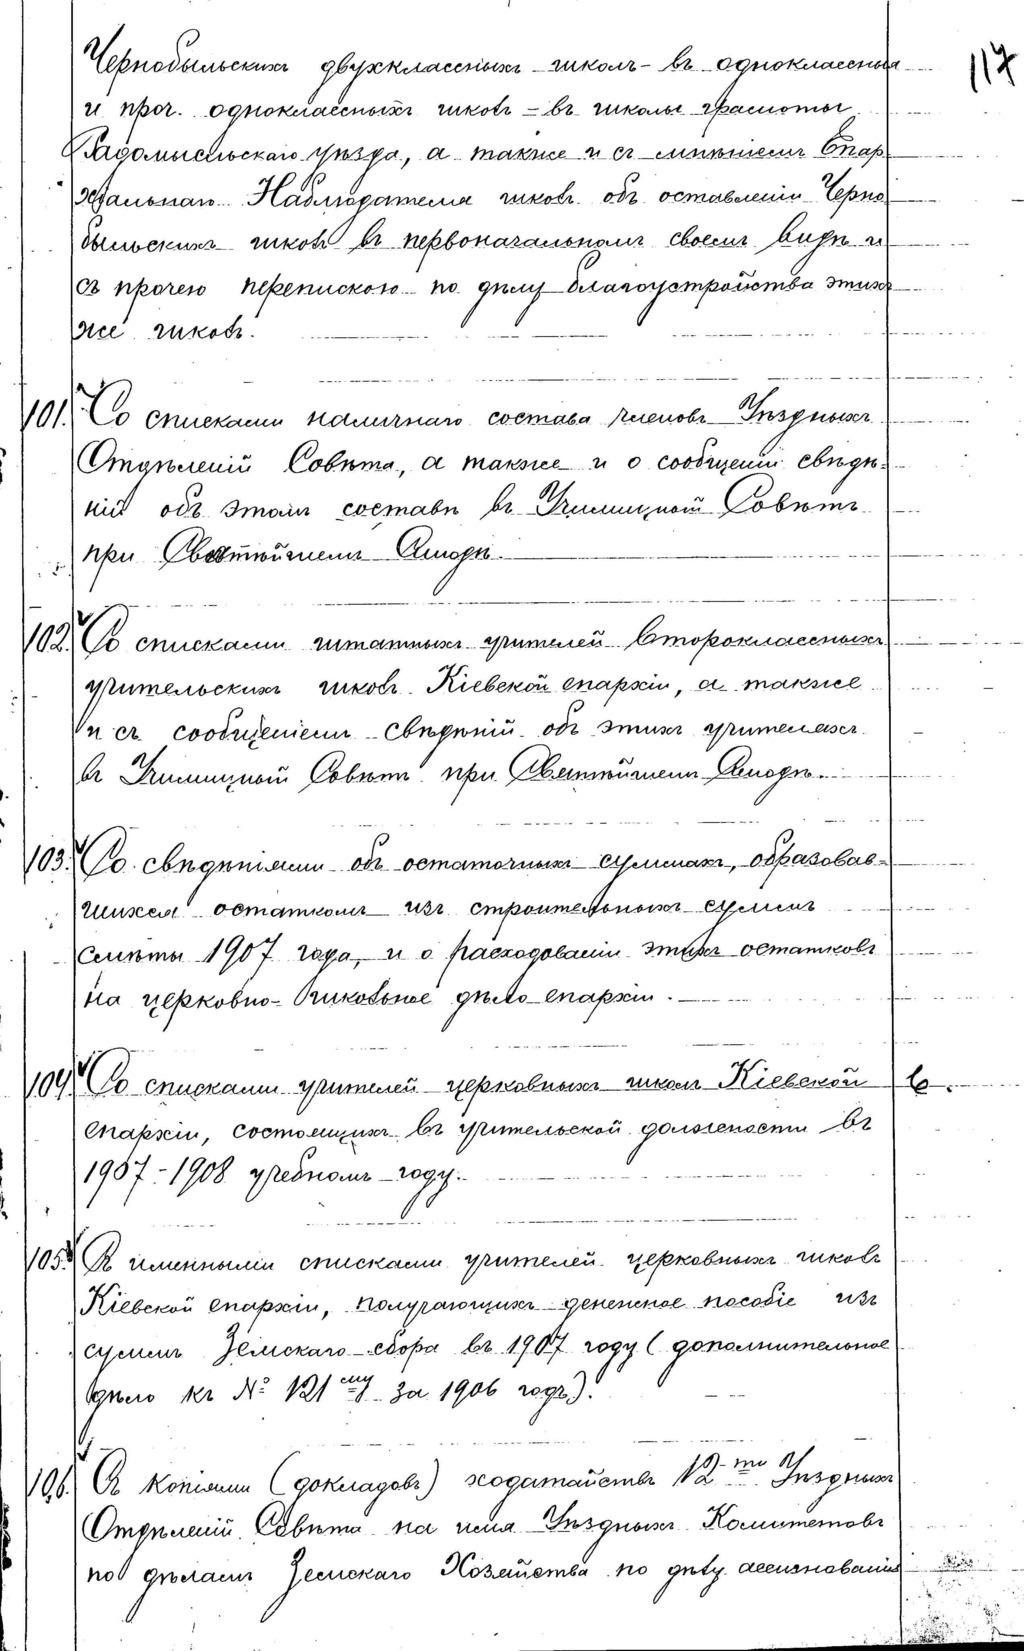 117
Чернобыльскихъ двухклассныхъ школъ - въ одноклассныя
и проч. одноклассныхъ школъ - въ школы грамоты
Радомысльскаго уѣзда, а также и съ мнѣніемъ Епар
хіальнаго Наблюдателя школъ объ оставленіи Черно
быльскихъ школъ въ первоначальномъ своемъ видѣ и
съ прочею перепискою по дѣлу благоустройства этихъ
же школъ.
101. Со списками наличнаго состава членовъ Уѣздныхъ
Отдѣленій Совѣта, а также и о сообщеніи свѣдѣ-
ній объ этомъ составѣ въ Училищной Совѣтъ
при Святѣйшемъ Синодѣ.
102. Со списками штатныхъ учителей Второклассныхъ
учительскихъ школъ Кіевской епархіи, а также
и съ сообщеніемъ свѣдѣній объ этихъ учителяхъ
въ Училищной Совѣтъ при Святѣйшемъ Синодѣ.
103. Со свѣдѣніями объ остаточныхъ суммахъ, образовав-
шихся остаткомъ изъ строительныхъ суммъ
смѣты 1907 года, и о расходованіи этихъ остатковъ
на церковно-школьное дѣло епархіи.
104. Со списками учителей церковныхъ школъ Кіевской
епархіи, состоящихъ въ учительской должности въ
1907-1908 учебномъ году.
105. Съ именными списками учителей церковныхъ школъ
Кіевской епархіи, получающихъ денежное пособіе изъ
суммъ Земскаго сбора въ 1907 году (дополнительное
дѣло къ № 121му за 1906 годъ).
106. Съ копіями (докладовъ) ходатайствъ 12-ти Уѣздныхъ
Отдѣленій Совѣта на имя Уѣздныхъ Комитетовъ
по дѣламъ Земскаго Хозяйства по дѣлу ассигнованія